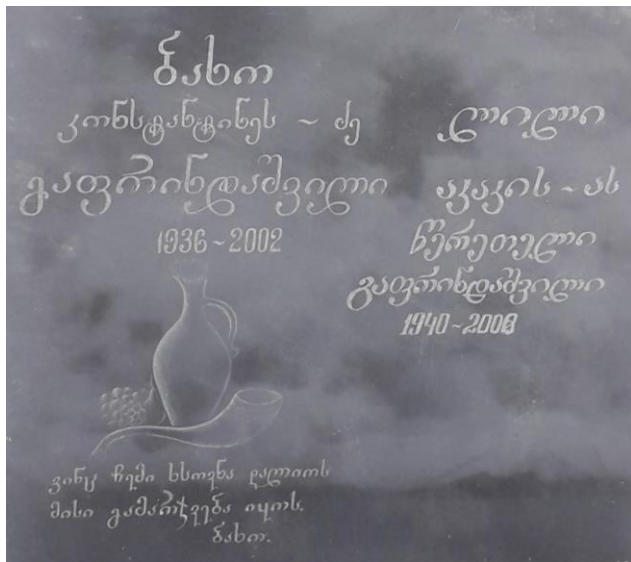 ბახო
კონსტანტინეს ~ ძე
გაფრინდაშვილი
1936 ~ 2002
ლილი
აკაკის ~ ას
წერეთელი
გაფრინდაშვილი
1940 ~ 2008
ვინც ჩემი ხსოვნა დალიოს
მისი გამარჯვება იყოს.
ბახო.